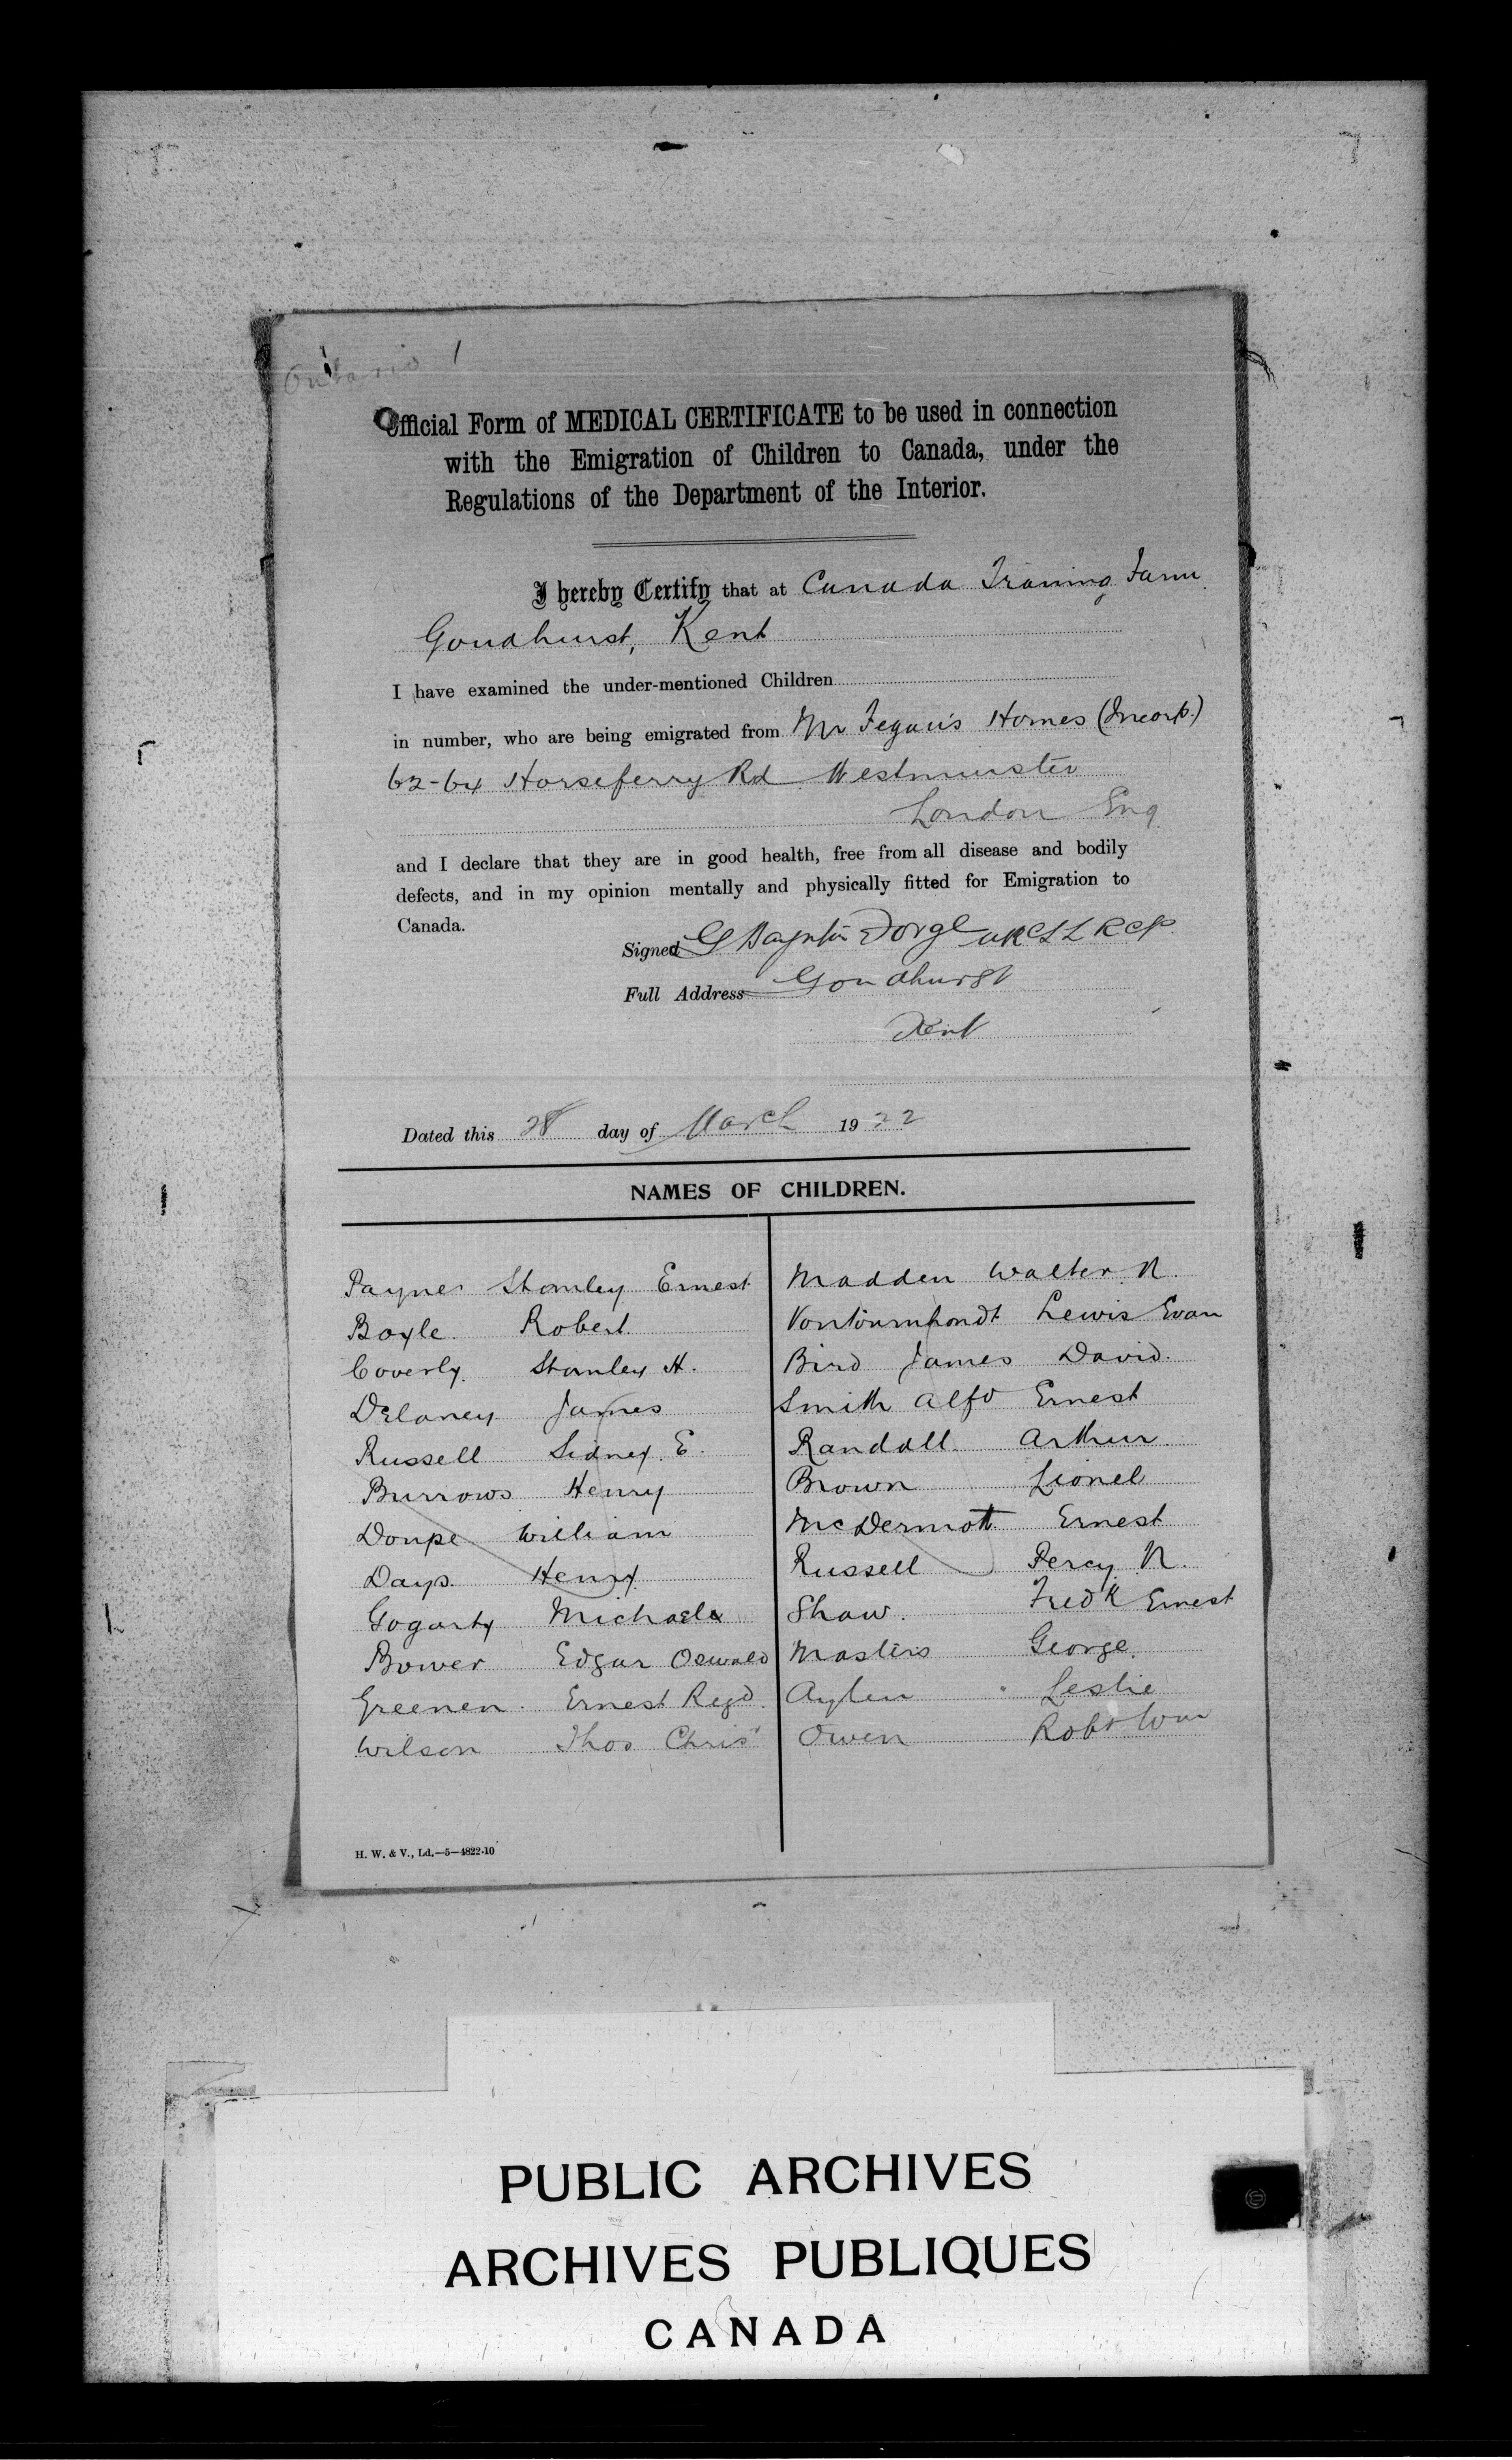 Ontario 1
Official Form of MEDICAL CERTIFICATE to be used in connection
with the Emigration of Children to Canada, under the
Regulations of the Department of the Interior.
I hereby Certify that at Canada Training Farm
Goudhurst, Kent
I have examined the under-mentioned Children
in number, who are being emigrated from Mr Fegan's Homes (Incorp.)
62-64 Horseferry Rd Westminster
London Eng
and I declare that they are in good health, free from all disease and bodily
defects, and in my opinion mentally and physically fitted for Emigration to
Canada.
Signed G MRCS LRCP
Full Address Goudhurst
Kent
Dated this 28 day of March 1922
NAMES OF CHILDREN.
Payne Stanley Ernest
Boyle Robert
Coverly Stanley H.
Delaney James
Russell Sidney E.
Burrows Henry
Doupe William
Days Henry
Gogarty Michael
Bower Edgar Oswald
Greenen Ernest Regd.
Wilson Thos Chris
Madden Walter R.
Lewis Evan
Bird James David.
Smith Alfd Ernest
Randall Arthur
Brown Lionel
McDermott Ernest
Russell Percy R.
Shaw. Fredk Ernest
Masters George.
Aylen Leslie
Owen Robt Wm
H. W. & V., Ld.—5—4822-10
PUBLIC ARCHIVES
ARCHIVES PUBLIQUES
CANADA